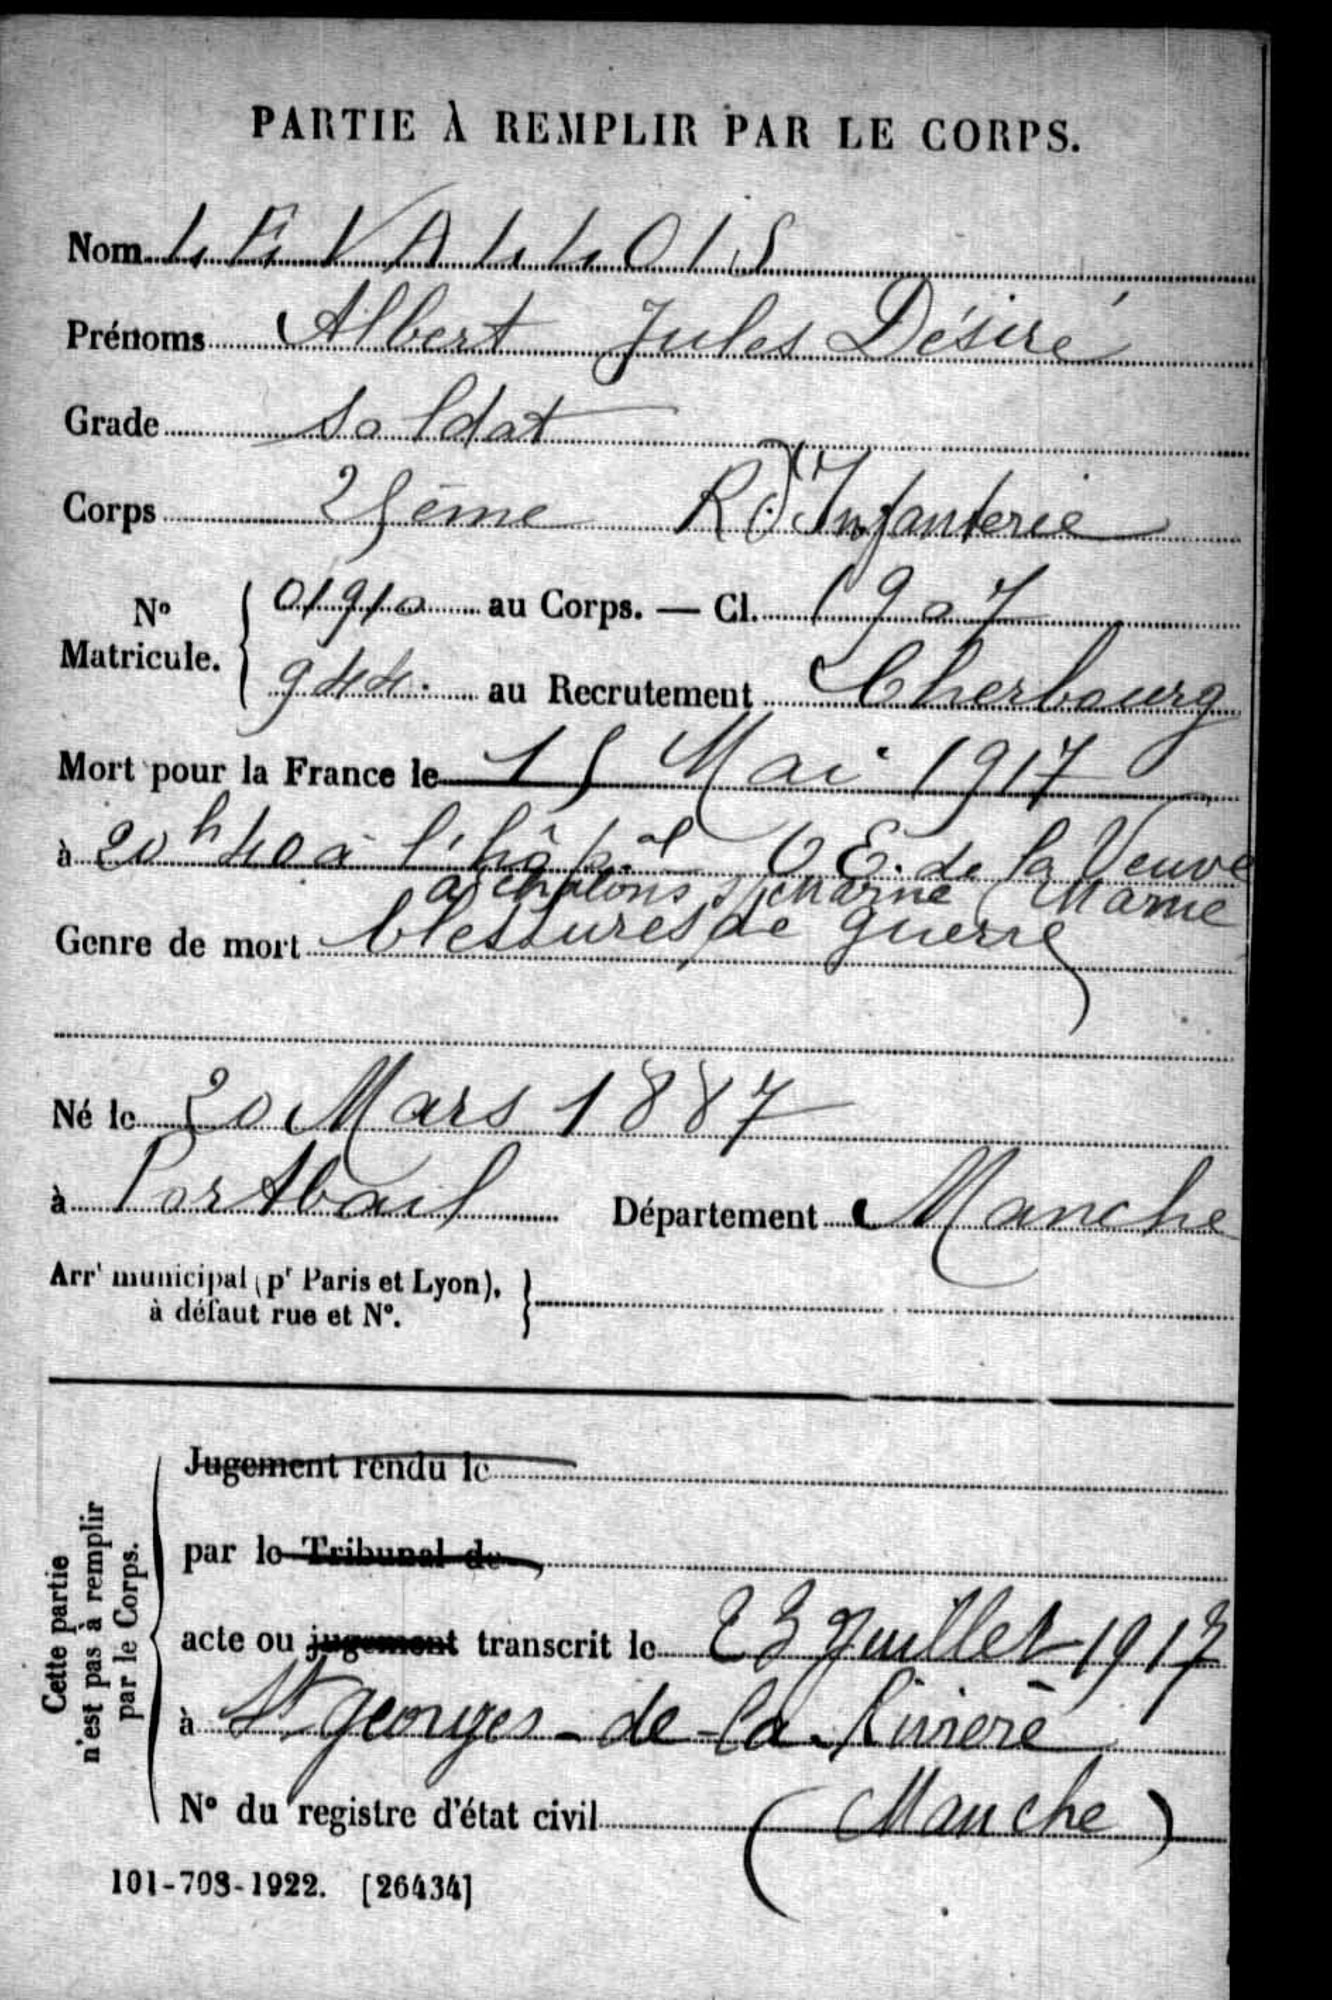 PARTIE À REMPLIR PAR LE CORPS.
Nom LEVALLOIS
Prénoms Albert Jules Désiré
Grade Soldat
Corps 25ème R. d'Infanterie
No Matricule. { 01910 au Corps. — Cl. 1907
944. au Recrutement Cherbourg
Mort pour la France le 15 Mai 1917
à 20h40 à l'hôp.al O E. de la Veuve
à Chalons s/ Marne (Marne
Genre de mort blessures de guerre
Né le 20 Mars 1887
à Portbail Département Manche
Arrt municipal (pr Paris et Lyon),
à défaut rue et No.
Cette partie
n'est pas à remplir
par le Corps.
Jugement rendu le
par le Tribunal de
acte ou jugement transcrit le 23 Juillet 1917
à St georges-de-la-Rivière
No du registre d'état civil (Manche)
101-708-1922. [26434]